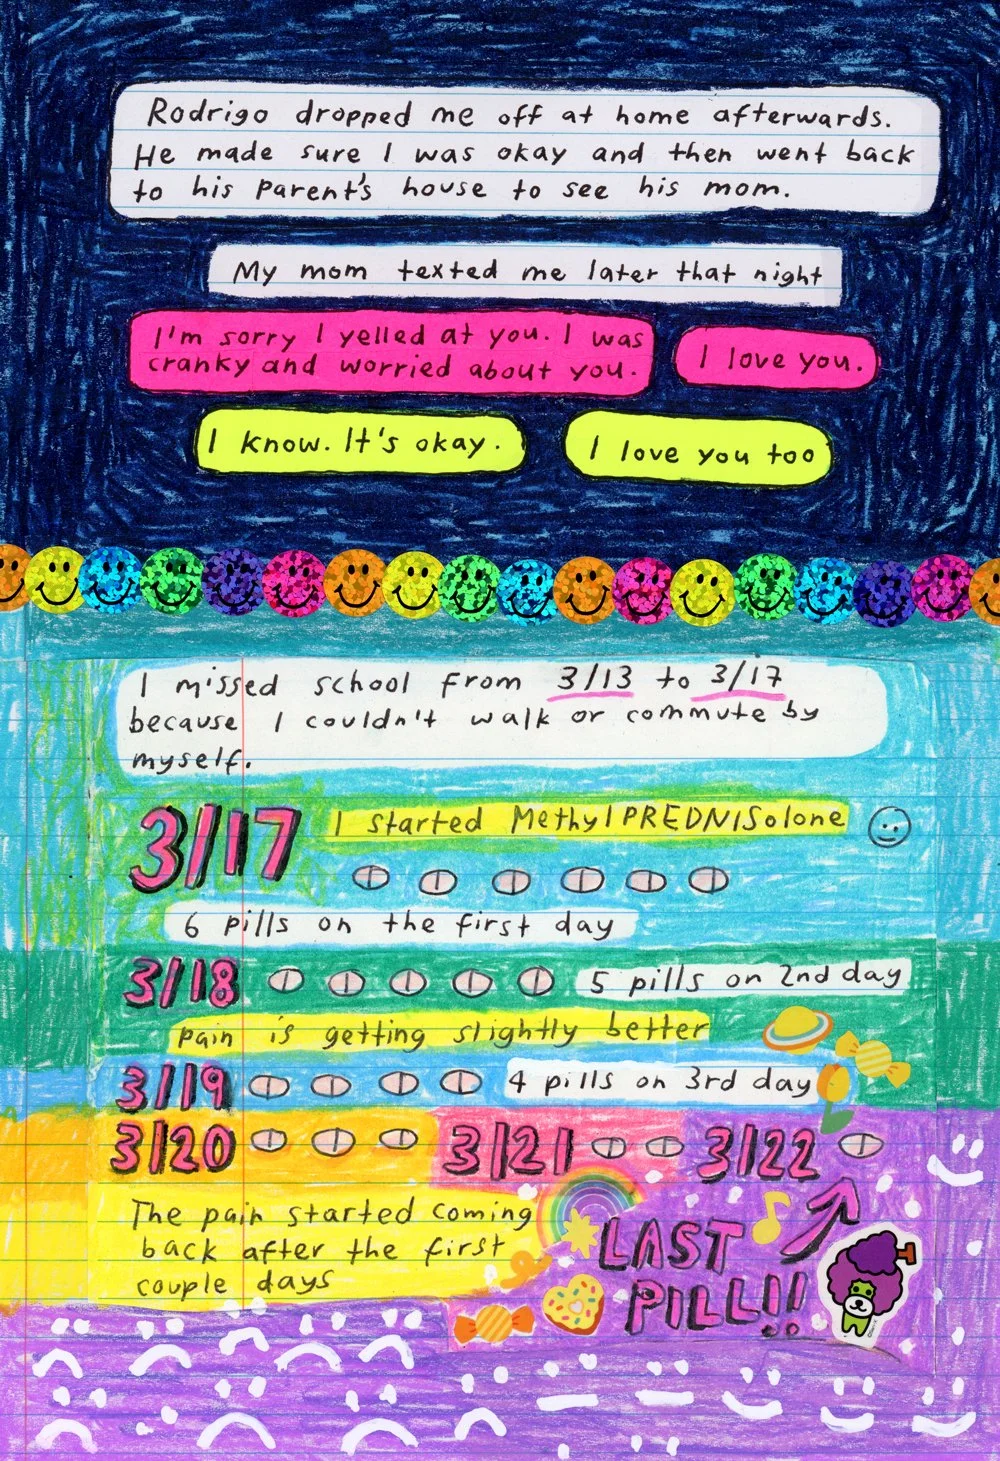 Rodrigo dropped me off at home afterwards.
He made sure I was okay and then went back
to his parent's house to see his mom.
My mom texted me later that night
I'm sorry I yelled at you. I was
cranky and worried about you.
I love you.
I know. It's okay.
I love you too
I missed school from 3/13 to 3/17
because I couldn't walk or commute by
myself.
3/17
I started MethylPREDNISolone
6 pills on the first day
3/18
5 pills on 2nd day
pain is getting slightly better
3/19
4 pills on 3rd day
3/20
3/21
3/22
The pain started coming
back after the first
couple days
LAST
PILL!!